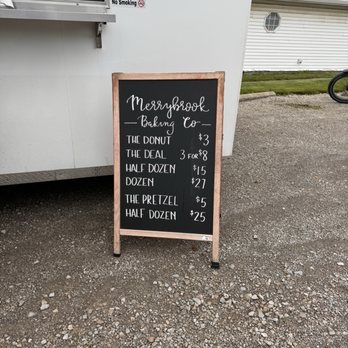 No Smoking
Merrybrook
— Baking Co —
THE DONUT $3
THE DEAL 3 FOR $8
HALF DOZEN $15
DOZEN $27
THE PRETZEL $5
HALF DOZEN $25